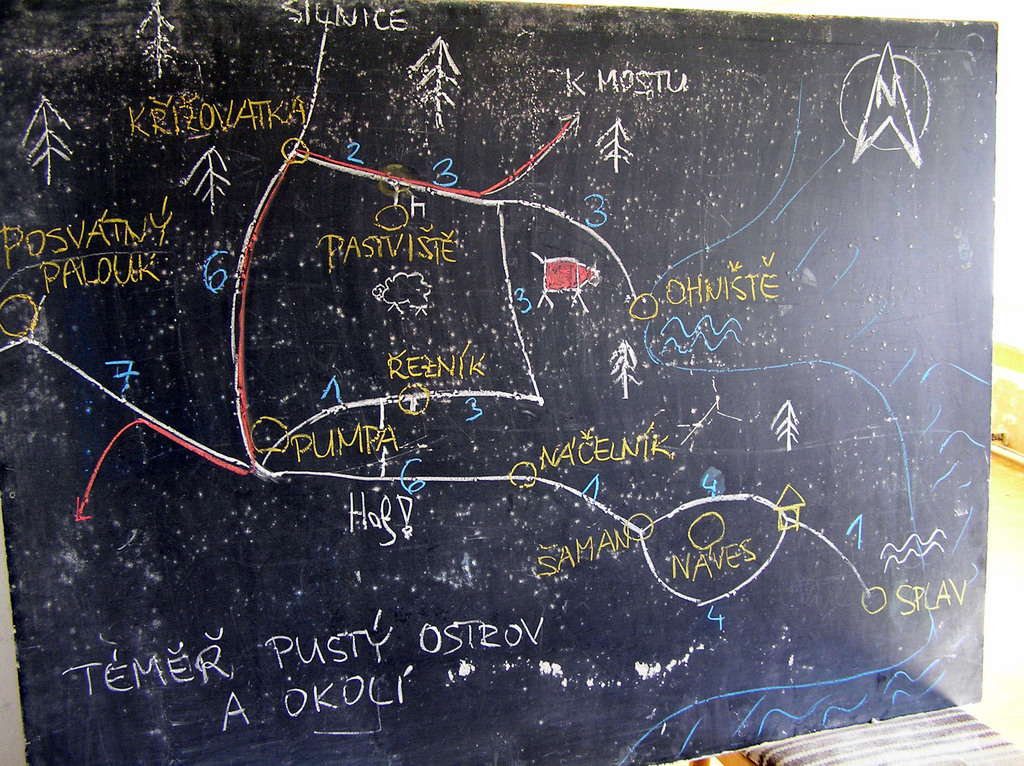 SILNICE
K MOSTU
N
KŘIŽOVATKA
2
3
3
POSVÁTNÝ
PALOUK
PASTVIŠTĚ
6
OHNIŠTĚ
3
7
ŘEZNÍK
1
3
PUMPA
NÁČELNÍK
6
1
4
Haf!
ŠAMAN
NÁVES
1
4
SPLAV
TÉMĚŘ PUSTÝ OSTROV
A OKOLÍ